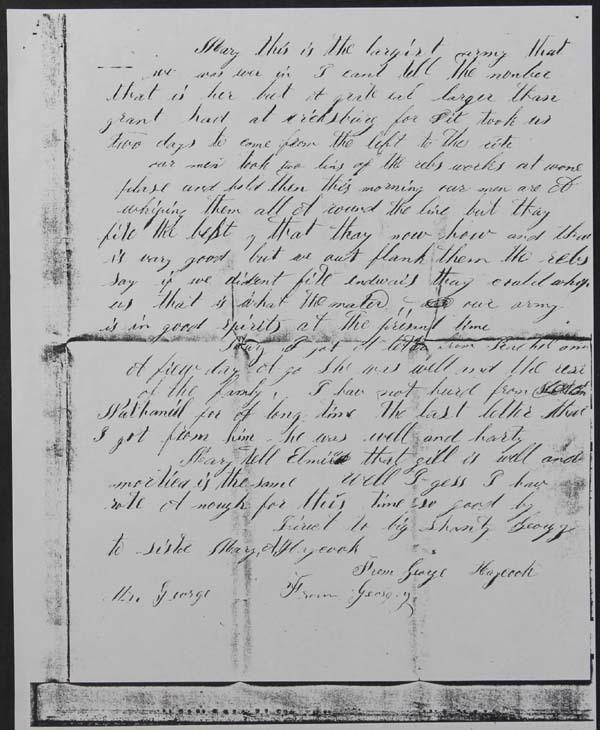 Mary this is the largist army that
we was ever in I cant tell the number
that is her but it grate eal larger than
grant had at vicksburg for it took us
two days to come from the left to the rite
our men took two lins of the rebs works at wone
plase and hold then this morning our men are
whiping them all A round the line but thay
fite the best that thay now how and thar
is vary good but we out flank them the rebs
say if we dident fite endwais thay could whip
us that is what the mater our army
is in good spirits at the presnt time
Mary I got A letter from
A few day A go she was well and the rest
of the family. I hav not heard from
Nathaniel for A long time the last letter that
I got from him he was well and harty
Mary tell Elmira that gill is well and
mortica is the same Well I gess I hav
rote A nough for this time so good by
Direct to big shanty Georgy
to sister Mary A Haycook
From George Haycook
George From Georgy